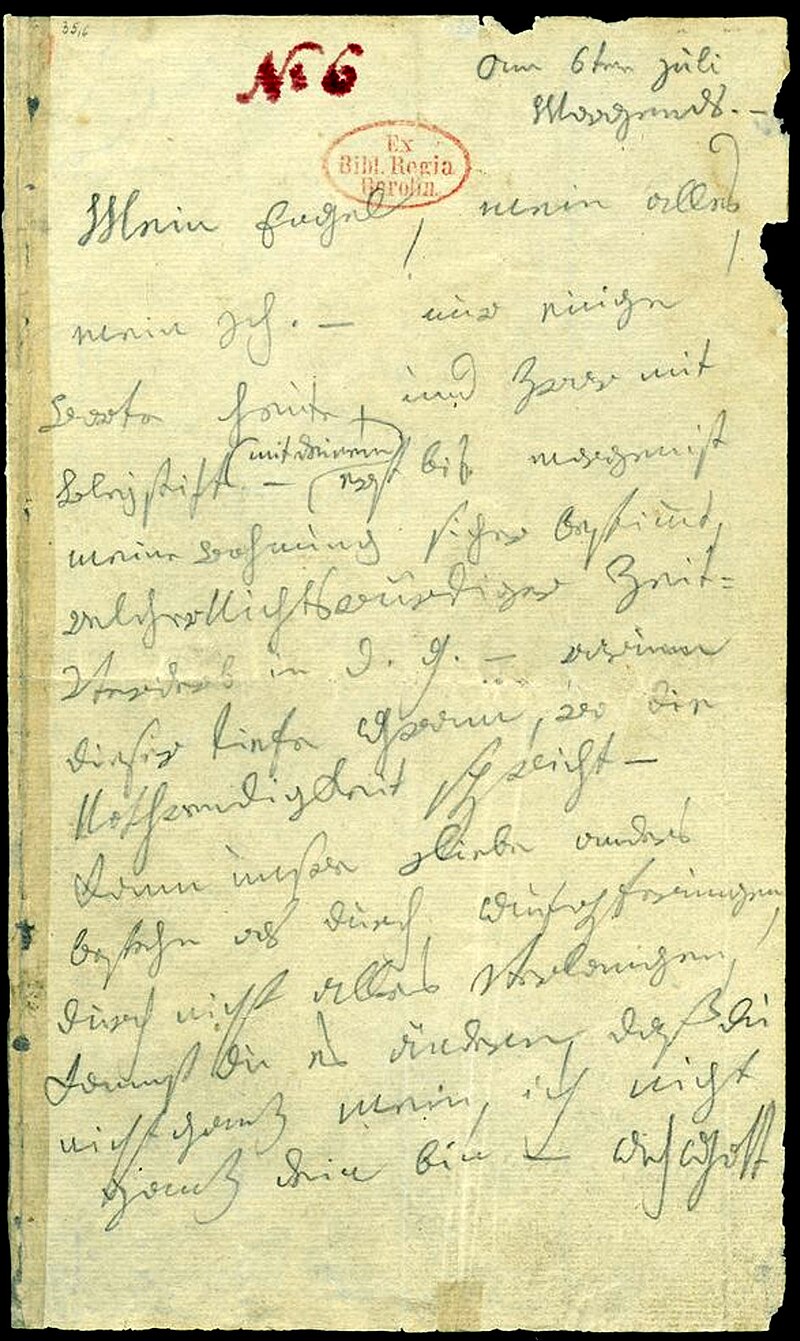 35,6
No 6
am 6ten juli
Morgends. —
Ex
Bibl. Regia
Berolin.
Mein Engel, mein alles,
mein Ich. — nur einige
Worte heute, und zwar mit
Bleystift (mit deinem)
— erst bis morgen ist
meine wohnung sicher bestimt,
welcher Nichtswürdiger Zeit=
Verderb in d. g. — warum
dieser tiefe Gram, wo die
Nothwendigkeit spricht —
Kann unsre Liebe anders
bestehn als durch Aufopferungen,
durch nicht alles Verlangen,
kannst du es ändern, daß du
nicht ganz mein, ich nicht
ganz dein bin — Ach Gott